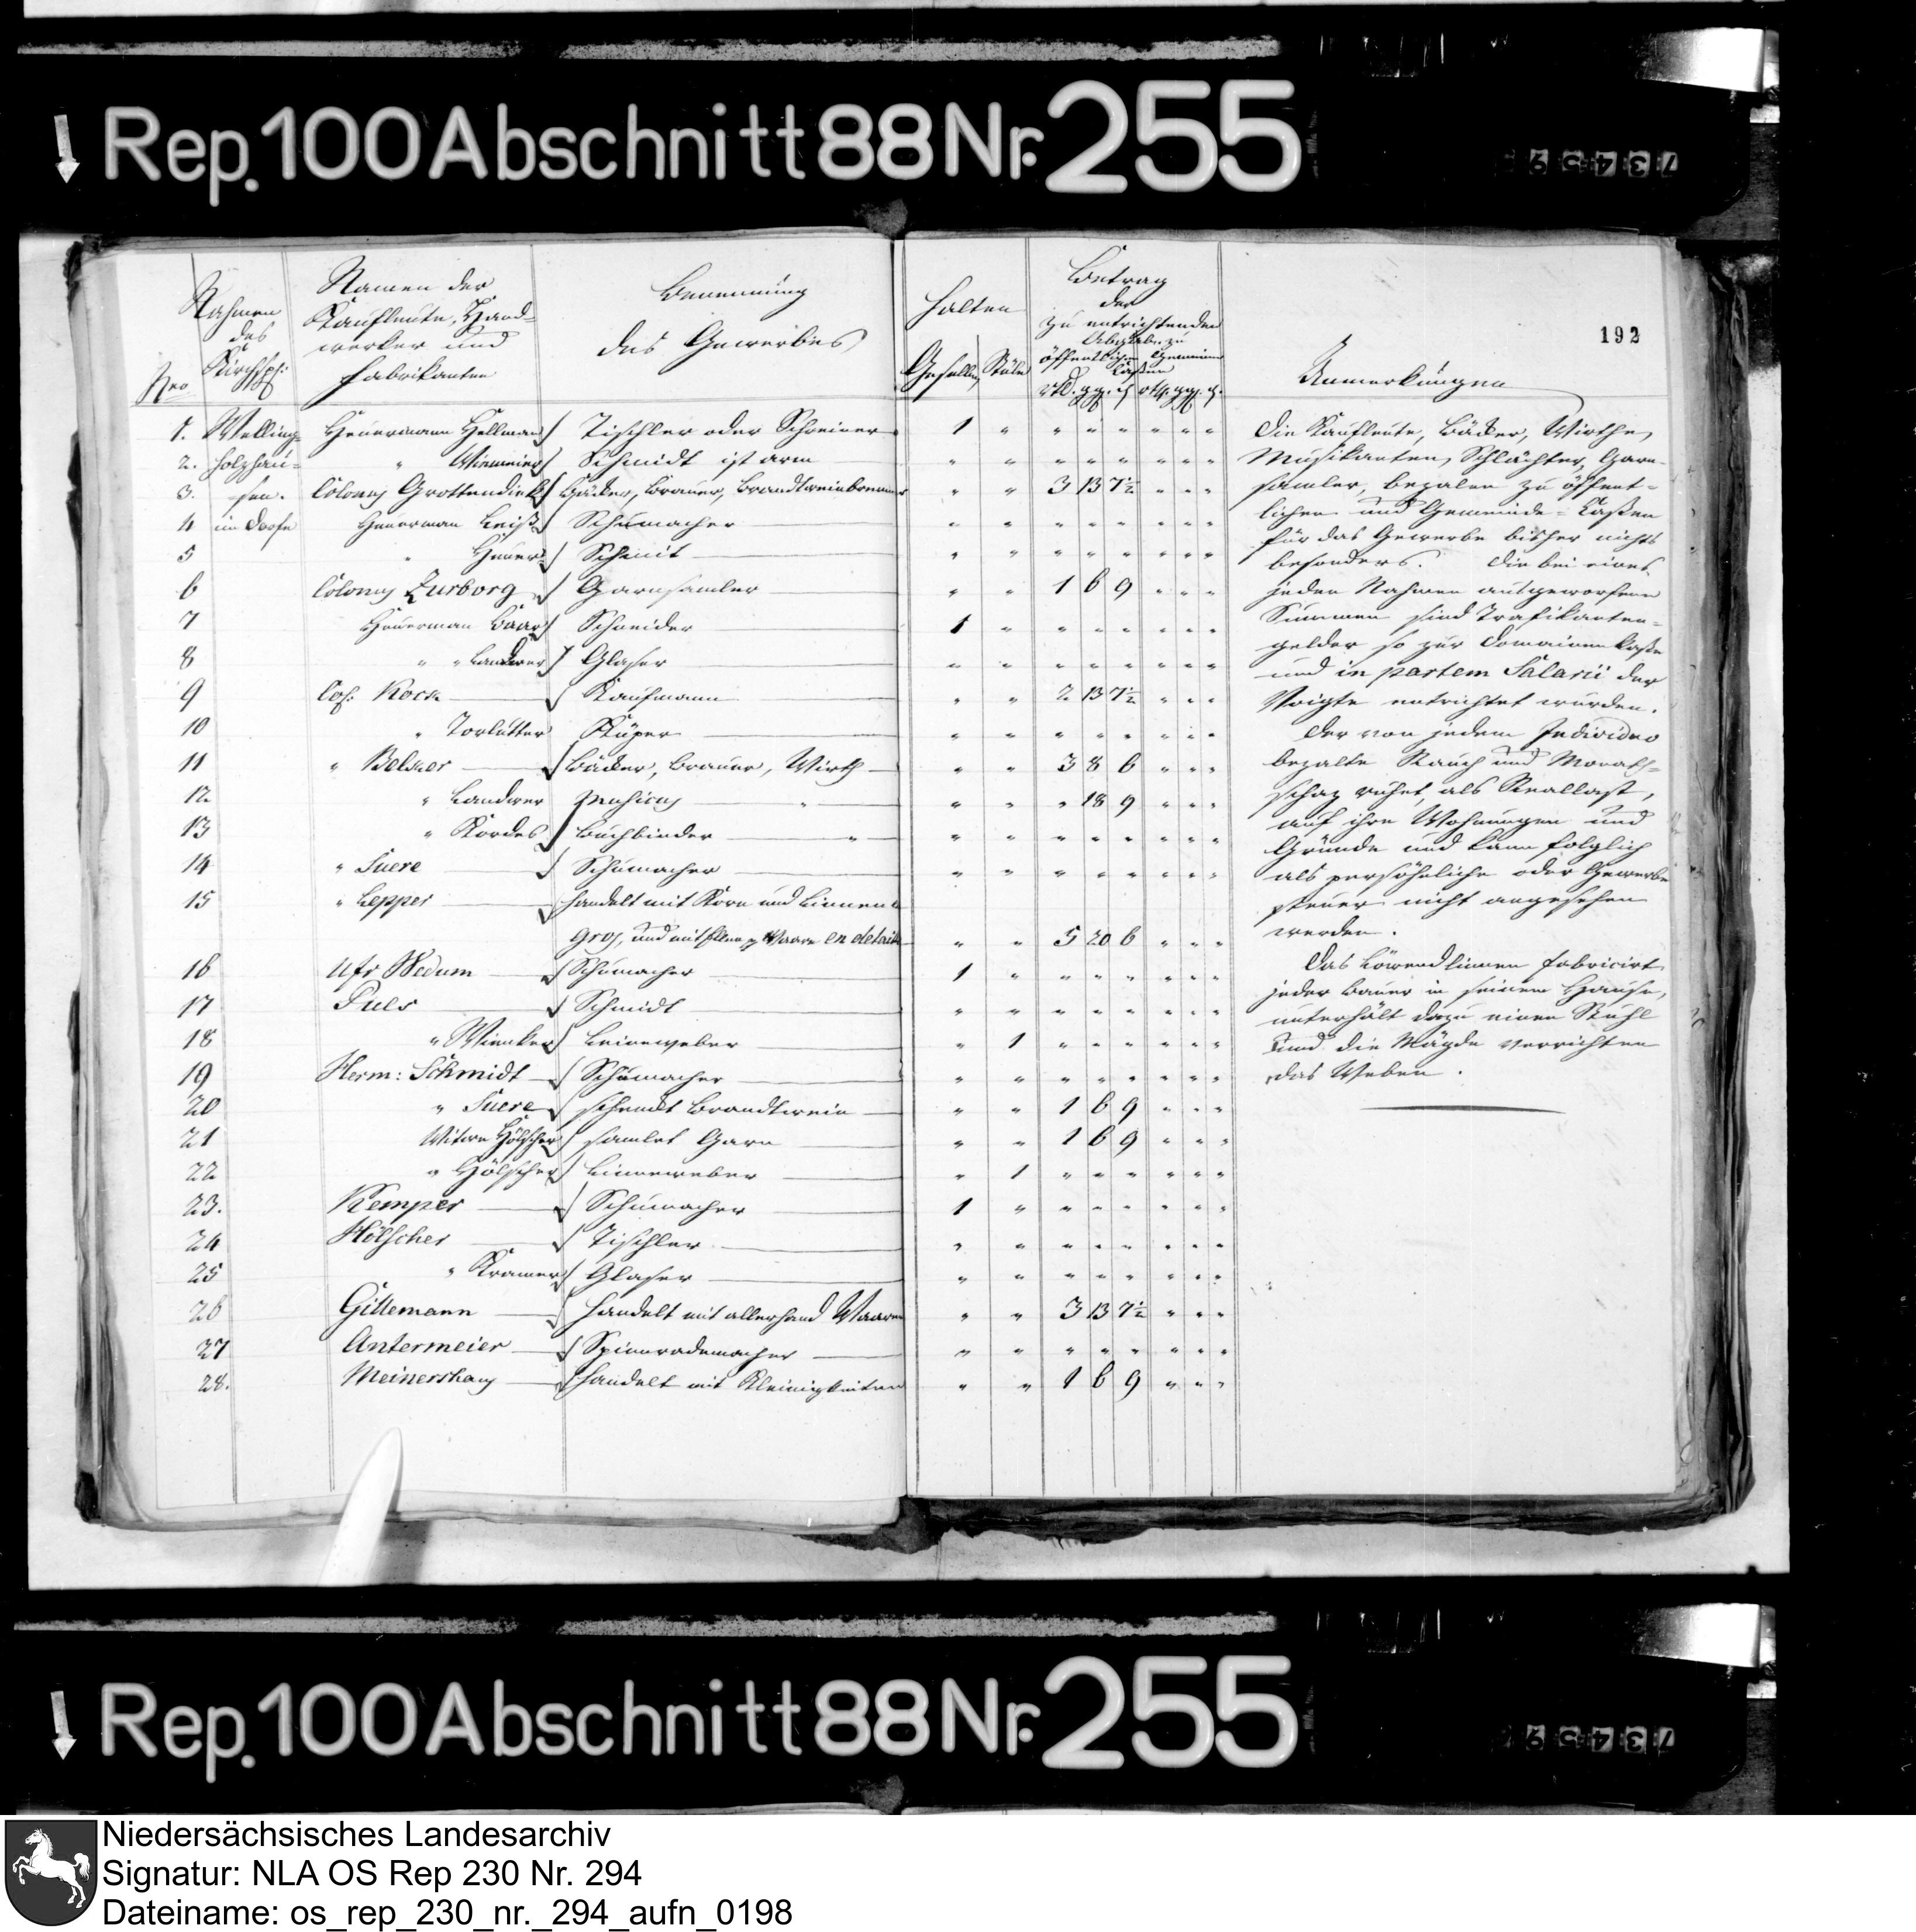 Rep. 100 Abschnitt 88 Nr. 255
73459
192
Nro
Nahmen des Kirchsp:
Namen der Kaufleute, Handwerker und Fabrikanten
Benennung des Gewerbes
halten
Gesellen Stüle
Betrag der zu entrichtenden Abgabe zu öffentlichen Gemeinen Caßen
rtl. ggr. ₰ rtlr. ggr. ₰.
Anmerkungen
1. Welling= Heuermann Hellman Tischler oder Schreiner 1 " " " " " " "
2. holzhau= " Wiemeier Schmidt ist arm " " " " " " " "
3. sen. Colonus Grottendiek Bäcker, Brauer, Brandtweinbrenner " " 3 13 7½ " " "
4 im Dorfe Heuerman Schumacher " " " " " " " "
5 " Heuer Schmit " " " " " " " "
6 Colonus Zurborg Garnsamler " " 1 6 9 " " "
7 Heuerman Baar Schneider 1 " " " " " " "
8 " " Landwer Glaser " " " " " " " "
9 Col: Kock Kaufmann " " 2 13 7½ " " "
10 " Torlutter Küper " " " " " " " "
11 " Belker Bäcker, Brauer, Wirth " " 3 8 6 " " "
12 " Landwer Musicus " " " 18 9 " " "
13 " Kordes Buchbinder " " " " " " " "
14 " Suere Schumacher " " " " " " " "
15 " Lepper handelt mit Korn und Linnen
Gros, und mit Waare en detail " " 5 20 6 " " "
16 Wedum Schumacher 1 " " " " " " "
17 Puls Schmidt " " " " " " " "
18 " Wienker Leineweber " 1 " " " " " "
19 Herm: Schmidt Schumacher " " " " " " " "
20 " Suere schenckt Brandtwein " " 1 6 9 " " "
21 Witwe Hölscher samlet Garn " " 1 6 9 " " "
22 " Hölscher Linneweber " 1 " " " " " "
23. Kemper Schumacher 1 " " " " " " "
24 Hölscher Tischler " " " " " " " "
25 " Kramer Glaser " " " " " " " "
26 Gillemann handelt mit allerhand Waaren " " 3 13 7½ " " "
27 Antermeier Spinnrademacher " " " " " " " "
28. Meinershag handelt mit Kleinigkeiten " " 1 6 9 " " "
Die Kaufleute, Bäcker, Wirthe,
Musikanten, Schlächter, Garn-
samler, bezalen zu öffent=
lichen und Gemeinde=Caßen
für das Gewerbe bisher nichts
besonders. Die bei eines
jeden Nahmen ausgeworfene
Summen sind Trafikanten=
gelder so zur Domainen Caße
und in partem Salarii der
Voigte entrichtet wurden.
Der von jedem Individuo
bezalte Rauch und Monath=
schaz ruhet, als Reallast,
auf ihre Wohnungen und
Gründe und kann folglich
als persöhnliche oder Gewerbe
steuer nicht angesehen
werden.
Das Löwendlinnen fabricirt
jeder Bauer in seinem Hause,
unterhält dazu einen Stuhl
und die Mägde verrichten
das Weben.
Rep. 100 Abschnitt 88 Nr. 255
73459
Niedersächsisches Landesarchiv
Signatur: NLA OS Rep 230 Nr. 294
Dateiname: os_rep_230_nr._294_aufn_0198